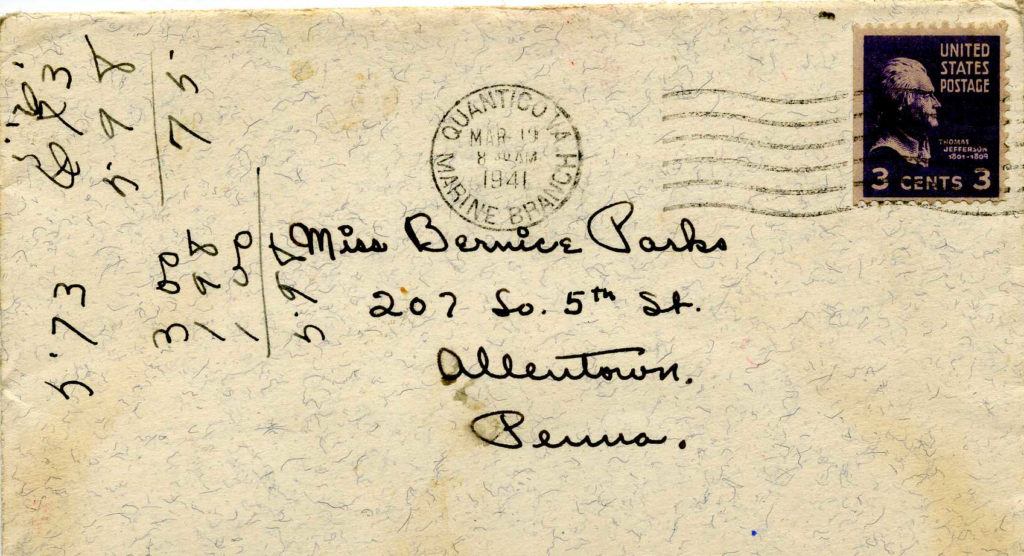 UNITED
STATES
POSTAGE
THOMAS
JEFFERSON
1801-1809
3 CENTS 3
QUANTICO VA
MAR 19
AM
1941
MARINE BRANCH
Miss Bernice Parks
207 So. 5th St.
Allentown,
Penna.
5.98
75
5.73
3 00
1 98
1 00
5.98